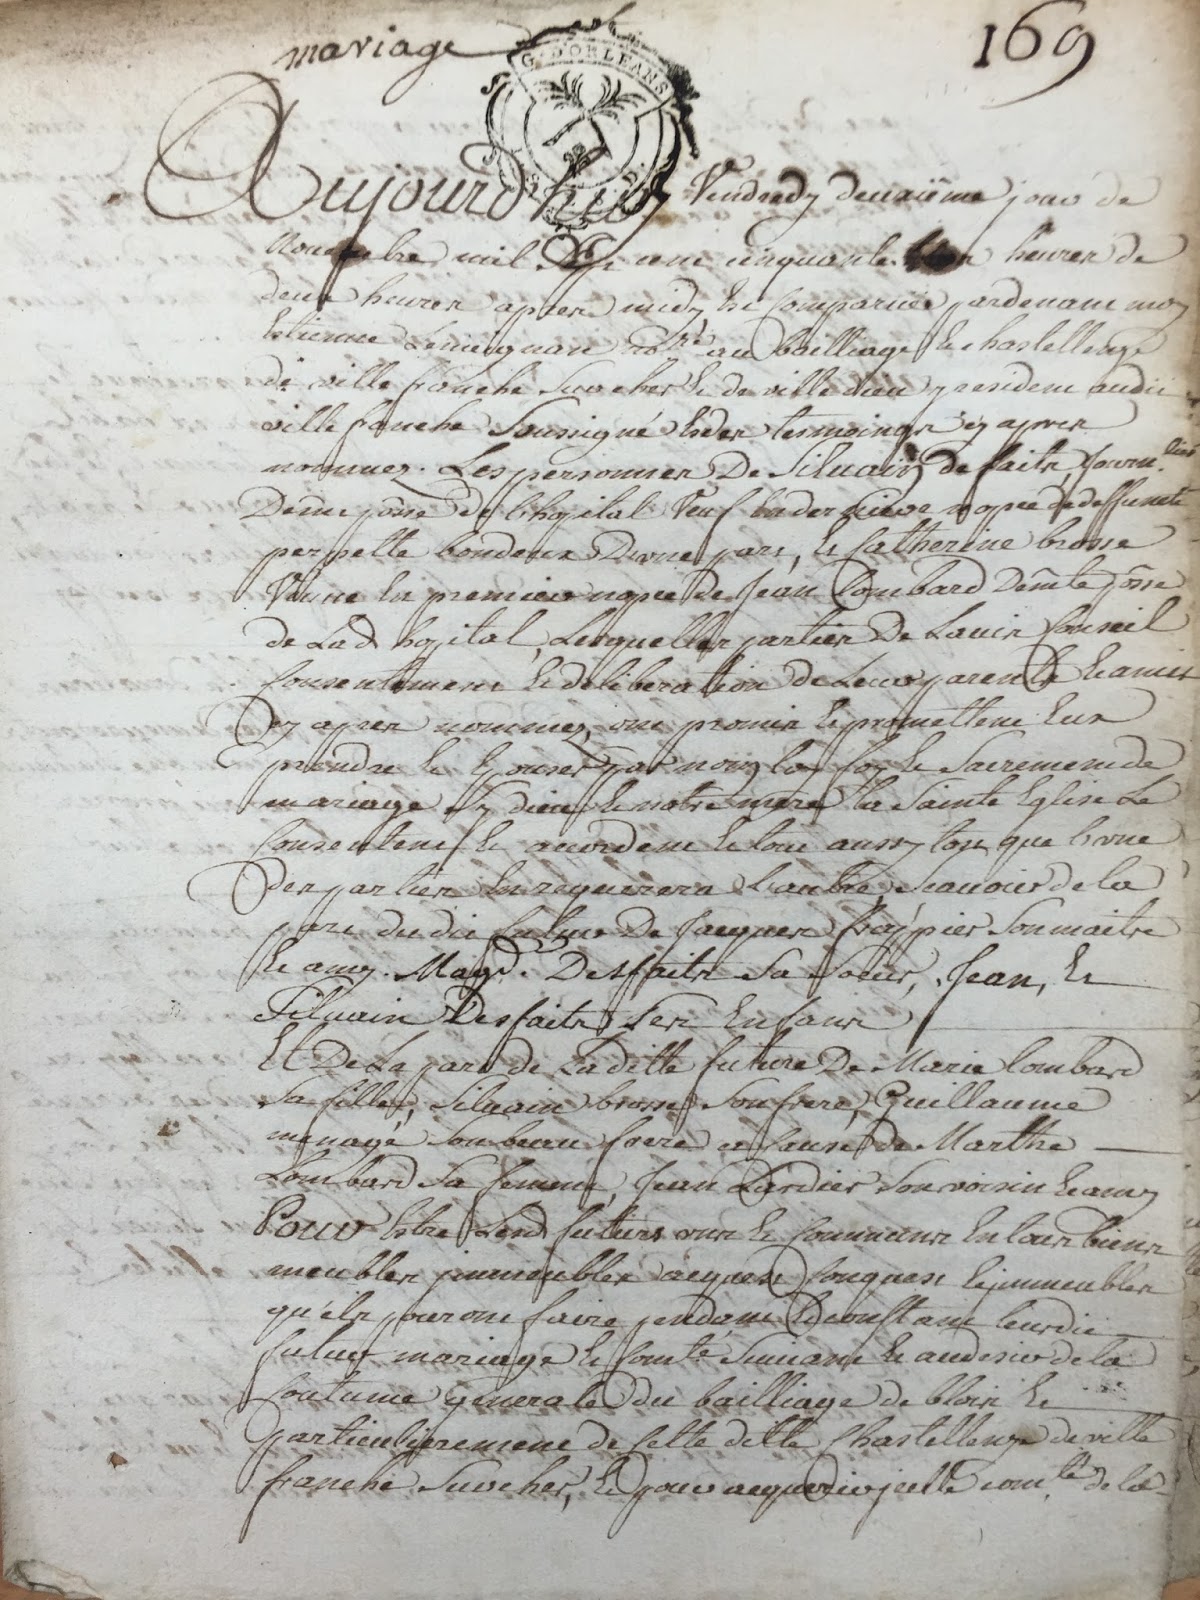 mariage
169
G. D'ORLEANS
Aujourd'huy Vendredy deuxiême jour de
Novembre mil sept cent cinquante heures de
deux heures apres midy est comparüe pardevant moy
Estienne Lemeignan no.re au bailliage et chastellenye
de ville franche sur cher et de ville dieu y resident audit
ville franche soussigné et des tesmoings cy apres
nommez. Les personnes De Silvain de faits, journ.lier
Demt psse de l'hopital Veuf en derniere nopce de deffuncte
perpette bondeux D'une part, et Catherine brosse
Veuve en premiere nopce de Jean Lombard Demte psse
de Lad hopital, Lesquelles parties De Lavis Conseil
Consentement et deliberation de Leurs parents et amis
cy apres nommez, ont promis et promettent eux
prendre et Epouser par nom loy foy et Sacrement de
mariage sy dieu et notre mere la Sainte Eglise Le
Consentent et accordent et tout aussy tost que L'une
Des parties En requerera L'autre, Scavoir de la
part dudit futur De Jacques frappier Son maitre
et amy. Magd. Desfaits Sa Soeur, Jean, et
Silvain Desfaits Ses Enfans
Et De La part de Laditte future De Marie Lombard
Sa fille, Silvain brosse Son frere, Guillaume
menagé Son beau frere a cause de Marthe
Lombard Sa femme, Jean Lardier Son voisin et amy
Pour Estre Lesd futurs uns et Communs En tous biens
meubles immeubles acquest Conquest et immeubles
qu'ils pouront faire pendant et constant leur dit
futur mariage et Com.té Suivant et au desir de la
Coutume generale du bailliage de blois et
particulierement de Cette ditte Chastellenye de ville
franche sur cher, et pour acquerir icelle com.té de la